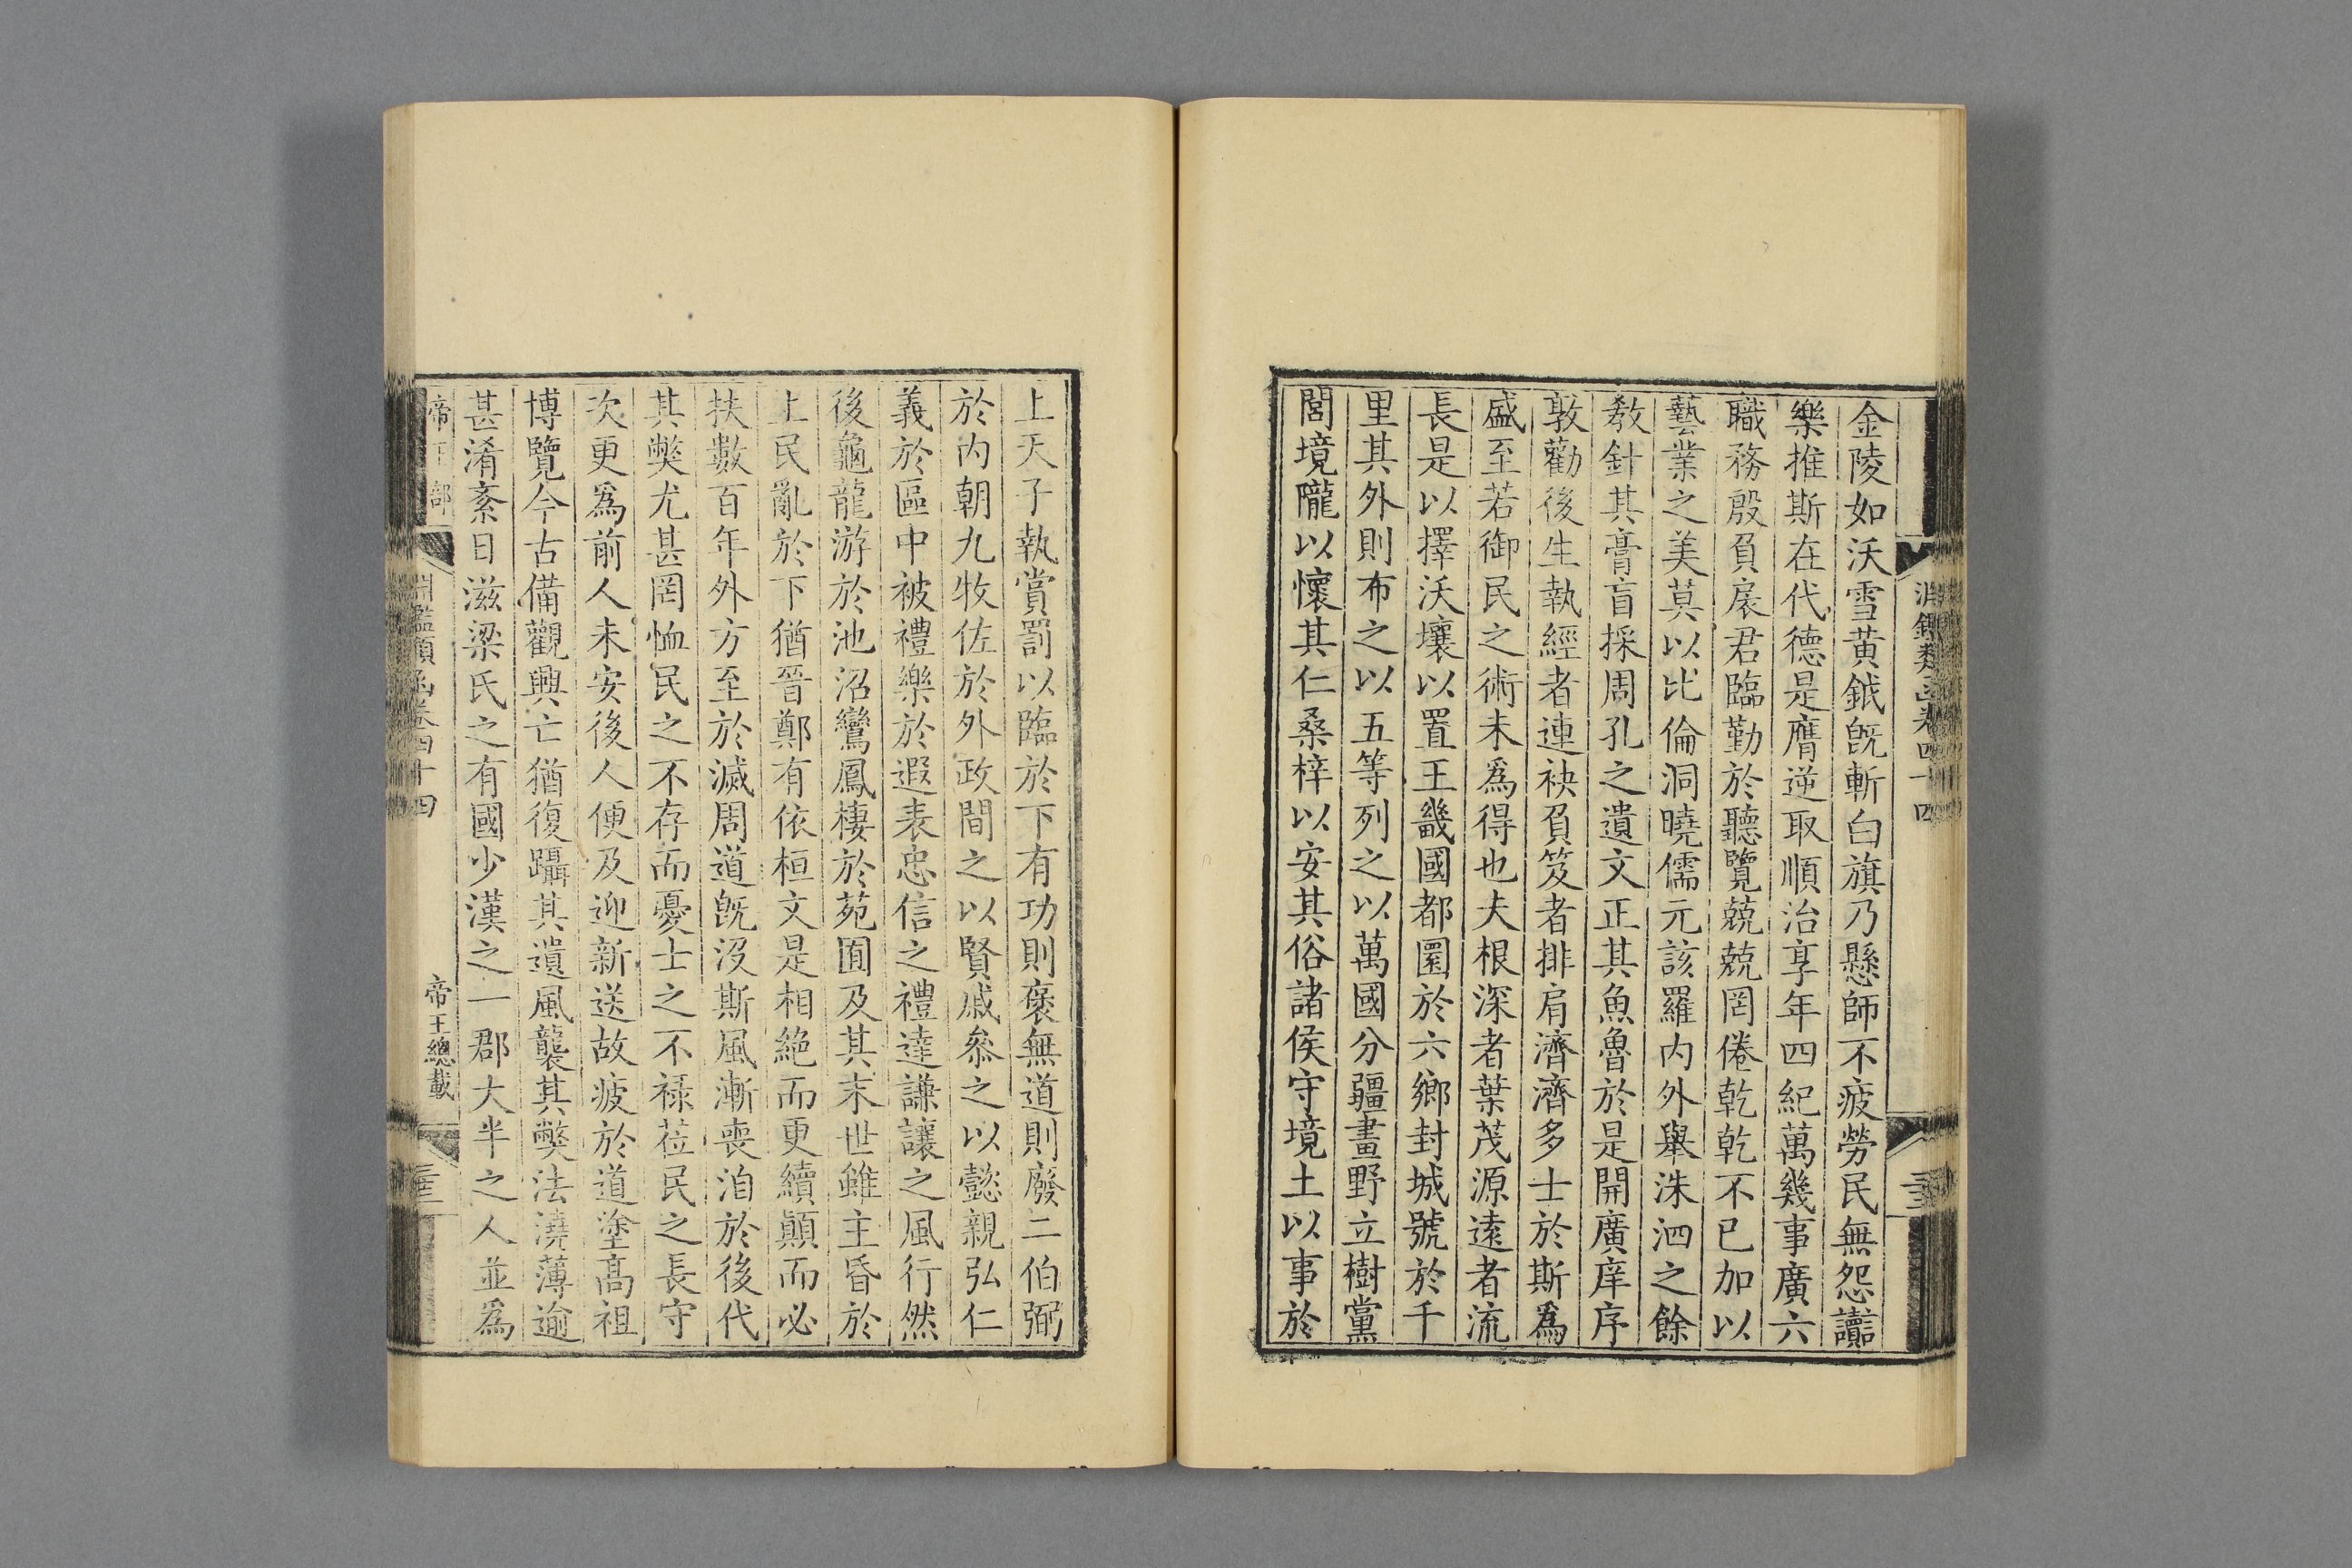 金陵如沃雪黃鉞既斬白旗乃懸師不疲勞民無怨讟
樂推斯在代德是膺逆取順治享年四紀萬幾事廣六
職務殷負扆君臨勤於聽覽兢兢罔倦乾乾不已加以
藝業之美莫以比倫洞曉儒元該羅內外舉洙泗之餘
教針其膏肓採周孔之遺文正其魚魯於是開廣庠序
敦勸後生執經者連袂負笈者排肩濟濟多士於斯為
盛至若御民之術未為得也夫根深者葉茂源遠者流
長是以擇沃壤以置王畿國都圜於六鄉封城號於千
里其外則布之以五等列之以萬國分疆畫野立樹黨
閭境隴以懷其仁桑梓以安其俗諸侯守境土以事於
淵鑑類函卷四十四
上天子執賞罰以臨於下有功則褒無道則廢二伯弼
於內朝九牧佐於外政間之以賢戚叅之以懿親弘仁
義於區中被禮樂於遐表忠信之禮達謙讓之風行然
後龜龍游於池沼鸞鳳棲於苑囿及其末世雖主昏於
上民亂於下猶晉鄭有依桓文是相絕而更續顛而必
扶數百年外方至於滅周道既沒斯風漸喪洎於後代
其弊尤甚罔恤民之不存而憂士之不祿莅民之長守
次更為前人未安後人便及迎新送故疲於道塗高祖
博覽今古備觀興亡猶復躡其遺風襲其弊法澆薄逾
甚淆紊日滋梁氏之有國少漢之一郡大半之人並為
淵鑑類函卷四十四
帝王總載